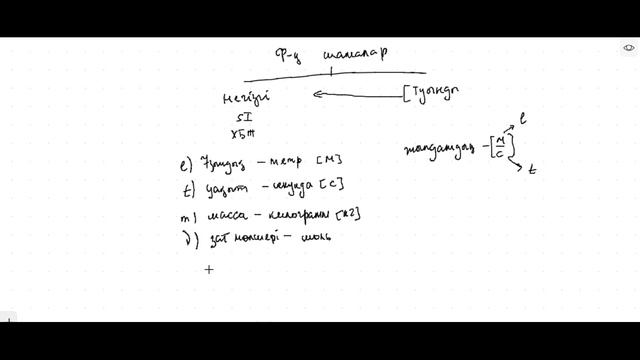 Ф-ң шамалар
Негізгі
[Туынды
SI
ХБЖ
l) Ұзындық – метр [м]
жылдамдық – [м/с]
l
t
t) уақыт – секунда [с]
m) масса – килограмм [кг]
ν) зат мөлшері – моль